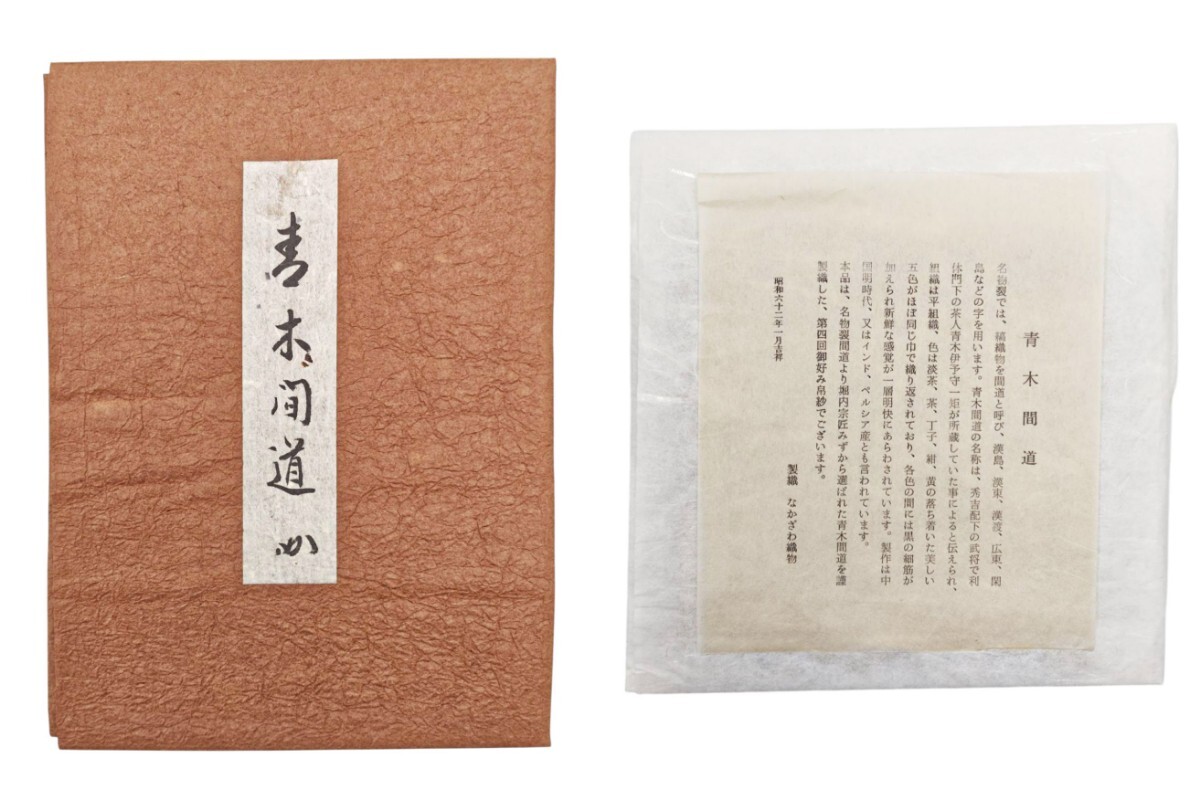 青木間道
青木間道
名物裂では、縞織物を間道と呼び、漢島、漢東、漢渡、広東、閑
島などの字を用います。青木間道の名称は、秀吉配下の武将で利
休門下の茶人青木伊予守一矩が所蔵していた事によると伝えられ、
組織は平組織、色は淡茶、茶、丁子、紺、黄の落ち着いた美しい
五色がほぼ同じ巾で織り返されており、各色の間には黒の細筋が
加えられ新鮮な感覚が一層明快にあらわされています。製作は中
国明時代、又はインド、ペルシア産とも言われています。
本品は、名物裂間道より堀内宗匠みずから選ばれた青木間道を謹
製織した、第四回御好み帛紗でございます。
製織　なかざわ織物
昭和六十二年一月吉祥